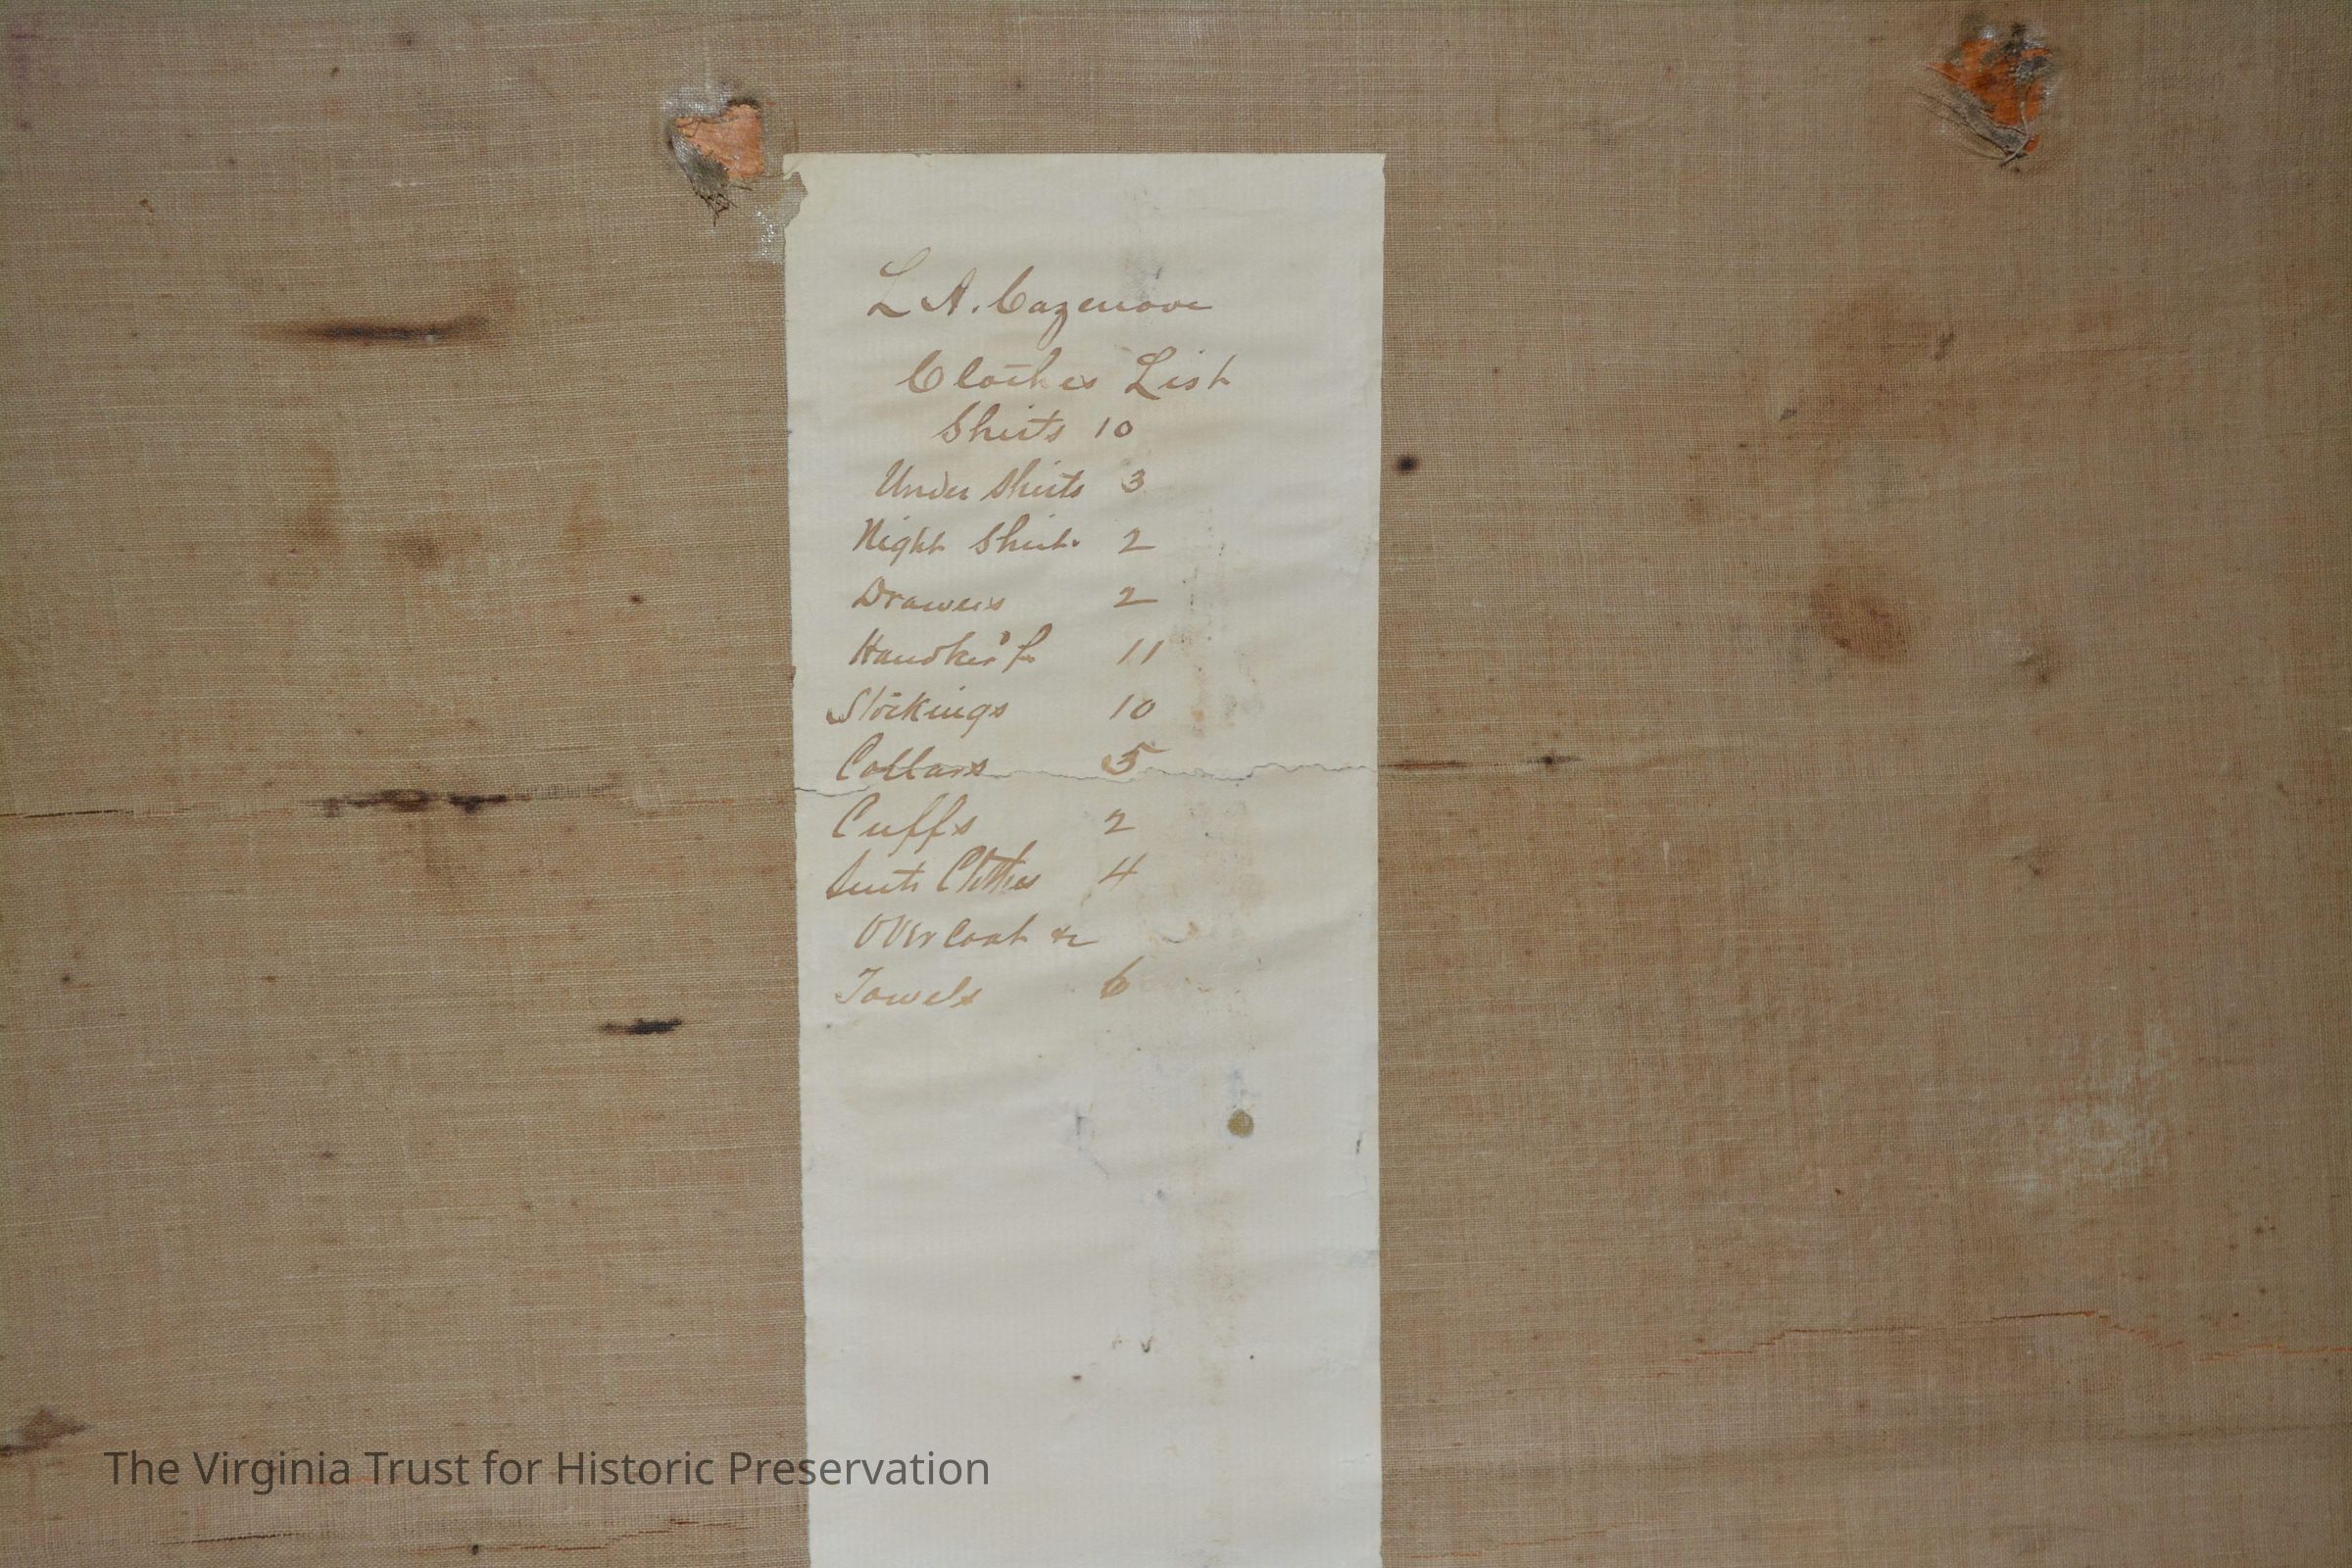 L A. Cazenove
Clothes List
Shirts 10
Under Shirts 3
Night Shirts 2
Drawers 2
Handker'fs 11
Stockings 10
Collars 5
Cuffs 2
Suits Clothes 4
Over Coat &c
Towels 6
The Virginia Trust for Historic Preservation